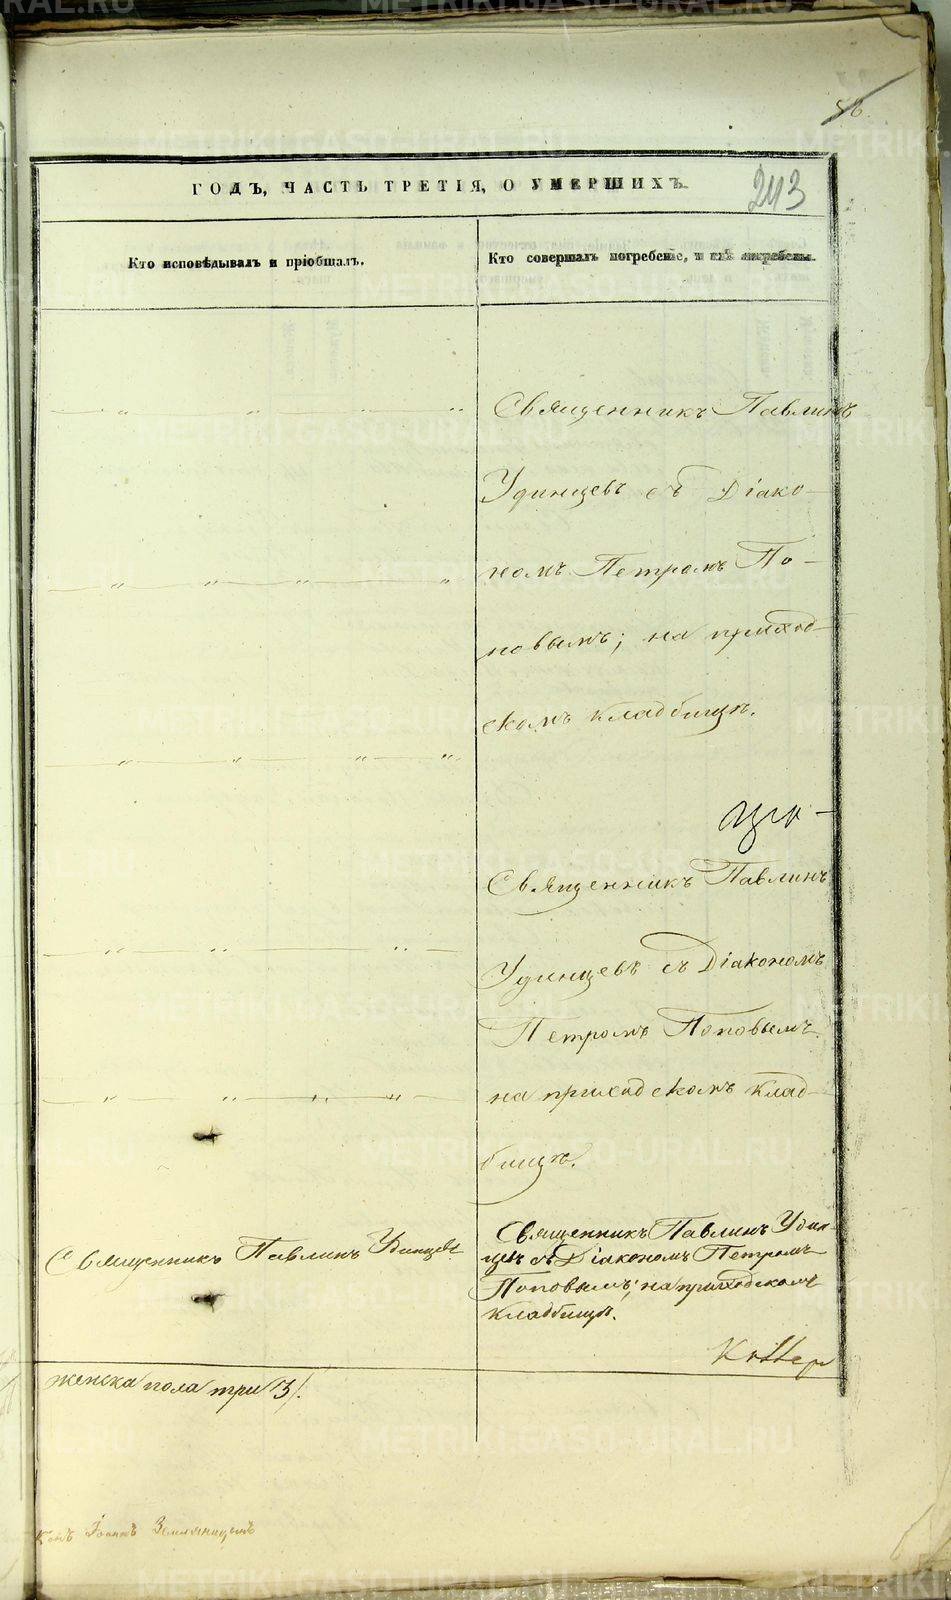 56.
ГОДЪ, ЧАСТЬ ТРЕТІЯ, О УМЕРШИХЪ.
243
Кто исповѣдывалъ и пріобщалъ.
Кто совершалъ погребеніе, и гдѣ погребены.
Священникъ Павлинъ
Удинцевъ съ Діако-
номъ Петромъ По-
повымъ; на приход-
скомъ кладбищѣ.
Священникъ Павлинъ
Удинцевъ съ Діакономъ
Петромъ Поповымъ
на приходскомъ клад-
бищѣ.
Священникъ Павлинъ Удинцевъ
Священникъ Павлинъ Удин-
цевъ съ Діакономъ Петромъ
Поповымъ; на приходскомъ
кладбищѣ.
женска пола три /3/.
Іоаннъ Земляницынъ
METRIKI.GASO-URAL.RU